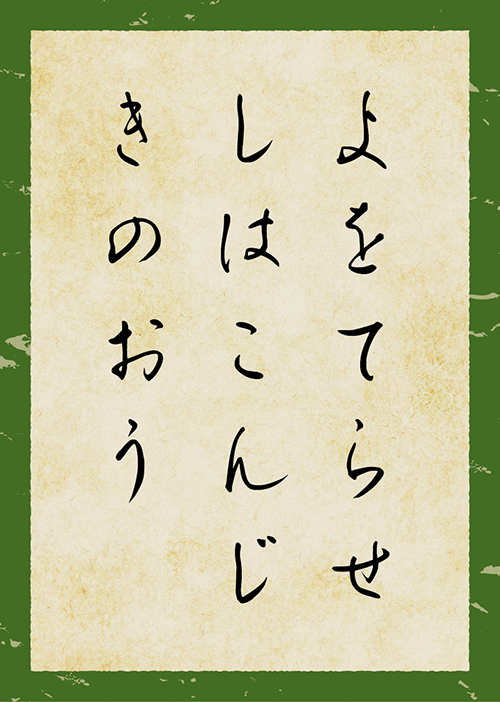 よをてらせ
しはこんじ
きのおう